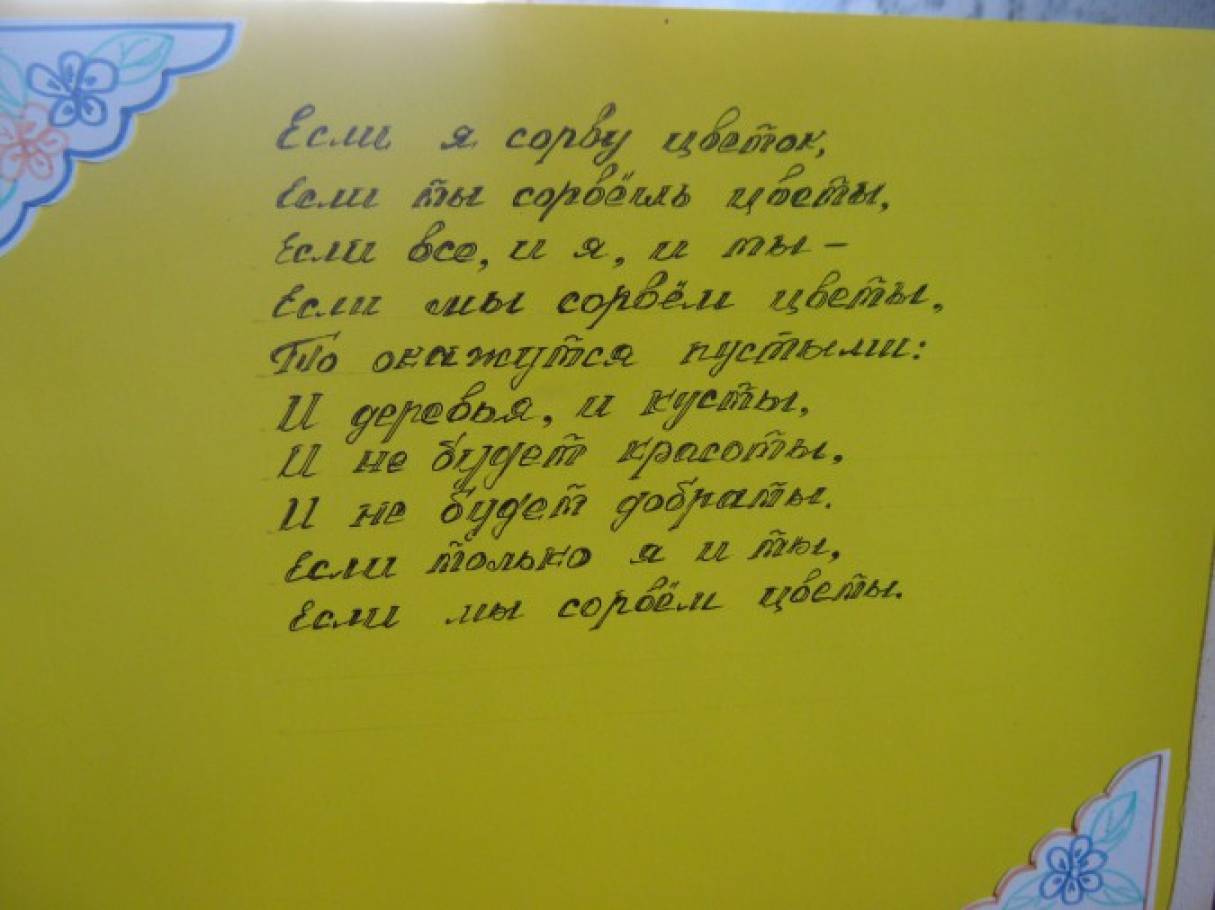 Если я сорву цветок,
Если ты сорвёшь цветы,
Если все, и я, и ты –
Если мы сорвём цветы,
То окажутся пустыми:
И деревья, и кусты,
И не будет красоты,
И не будет добраты.
Если только я и ты,
Если мы сорвём цветы.